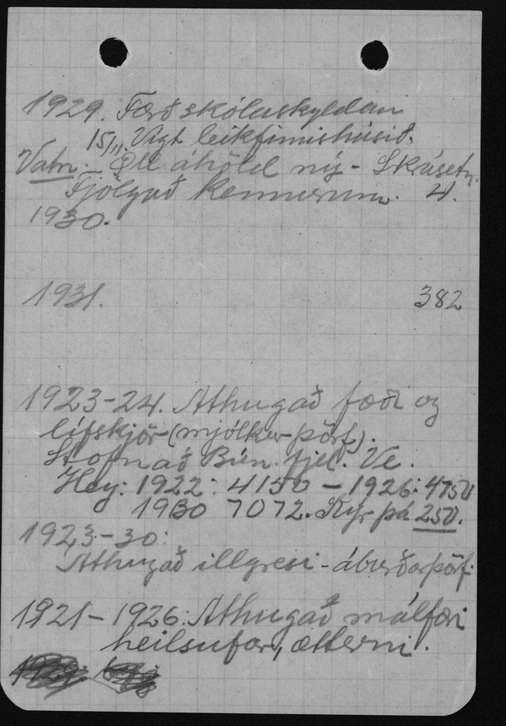 1929. Færð skólaskyldan
15/11 Vígt leikfimishúsið.
Vatn. Öll áhöld ný - Skrásetn.
Fjölgað kennurum. 4.
1930.
1931. 382
1923-24. Athugað fæði og
lífskjör-(mjólkur-þörf).
Stofnað Bún. fjel. Ve.
Hey: 1922: 4150 - 1926: 4750
1930 7072. Kýr þá 250.
1923-30:
Athugað illgresi - áburðarþörf.
1921-1926: Athugað málfæri
heilsufar, ætterni.